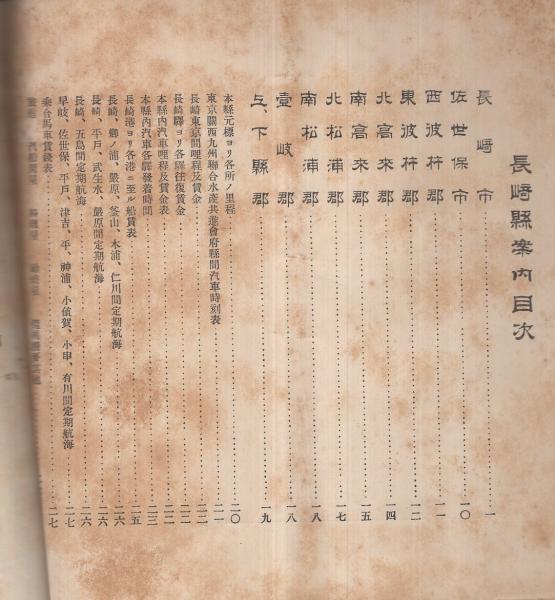 長崎縣案內目次
長崎市 一
佐世保市 一〇
西彼杵郡 一一
東彼杵郡 一二
北高來郡 一四
南高來郡 一五
北松浦郡 一七
南松浦郡 一八
壹岐郡 一八
上、下縣郡 一九
本縣元標ヨリ各所ノ里程 二〇
東京關西九州聯合水產共進會府縣間汽車時刻表 二一
長崎東京間哩程及賃金 二二
長崎驛ヨリ各驛往復賃金 二二
本縣內汽車哩程及賃金表 二二
本縣內汽車各驛發着時間 二三
長崎港ヨリ各港ニ至ル船賃表 二五
長崎、鄕ノ浦、嚴原、釜山、木浦、仁川間定期航海 二六
長崎、平戶、武生水、嚴原間定期航海 二六
長崎、五島間定期航海 二六
早岐、佐世保、平戶、津吉、平、神浦、小値賀、小串、有川間定期航海 二七
乘合馬車賃錢表 二七